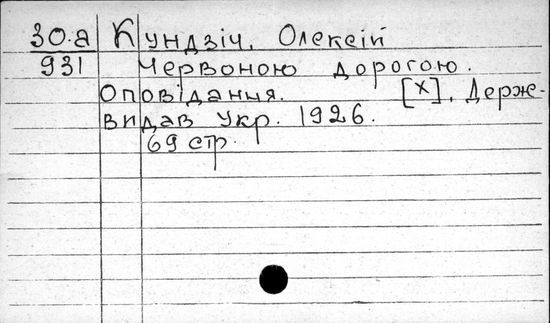 30.а Кундзіч, Олексій
931 Червоною дорогою.
Оповідання. [х], Держ-
видав Укр. 1926.
69 стр.